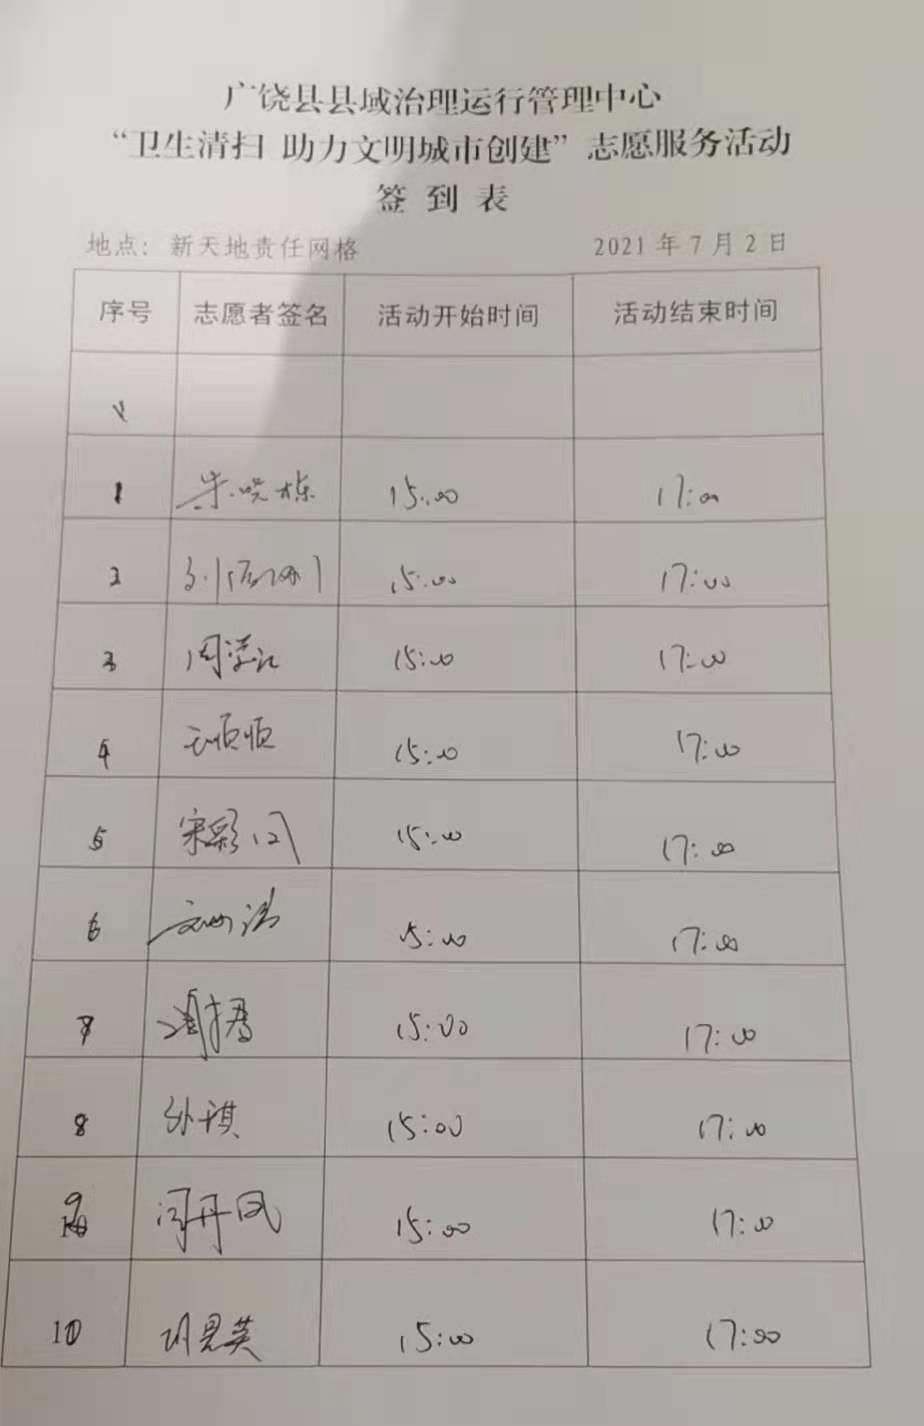 广饶县县域治理运行管理中心
“卫生清扫 助力文明城市创建”志愿服务活动
签 到 表
地点：新天地责任网格 2021年7月2日
序号 志愿者签名 活动开始时间 活动结束时间
1 朱晓栋 15:00 17:00
2 15:00 17:00
3 15:00 17:00
4 王顺顺 15:00 17:00
5 宋彩凤 15:00 17:00
6 15:00 17:00
7 15:00 17:00
8 孙琪 15:00 17:00
9 闫丹凤 15:00 17:00
10 15:00 17:00